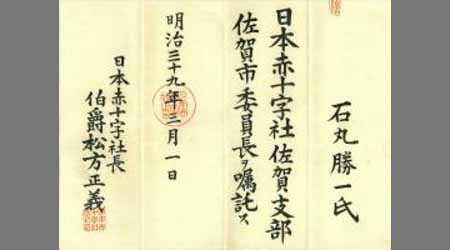 石丸勝一氏
日本赤十字社佐賀支部
佐賀市委員長ヲ嘱託ス
明治三十九年三月一日
日本赤十字社長
伯爵松方正義